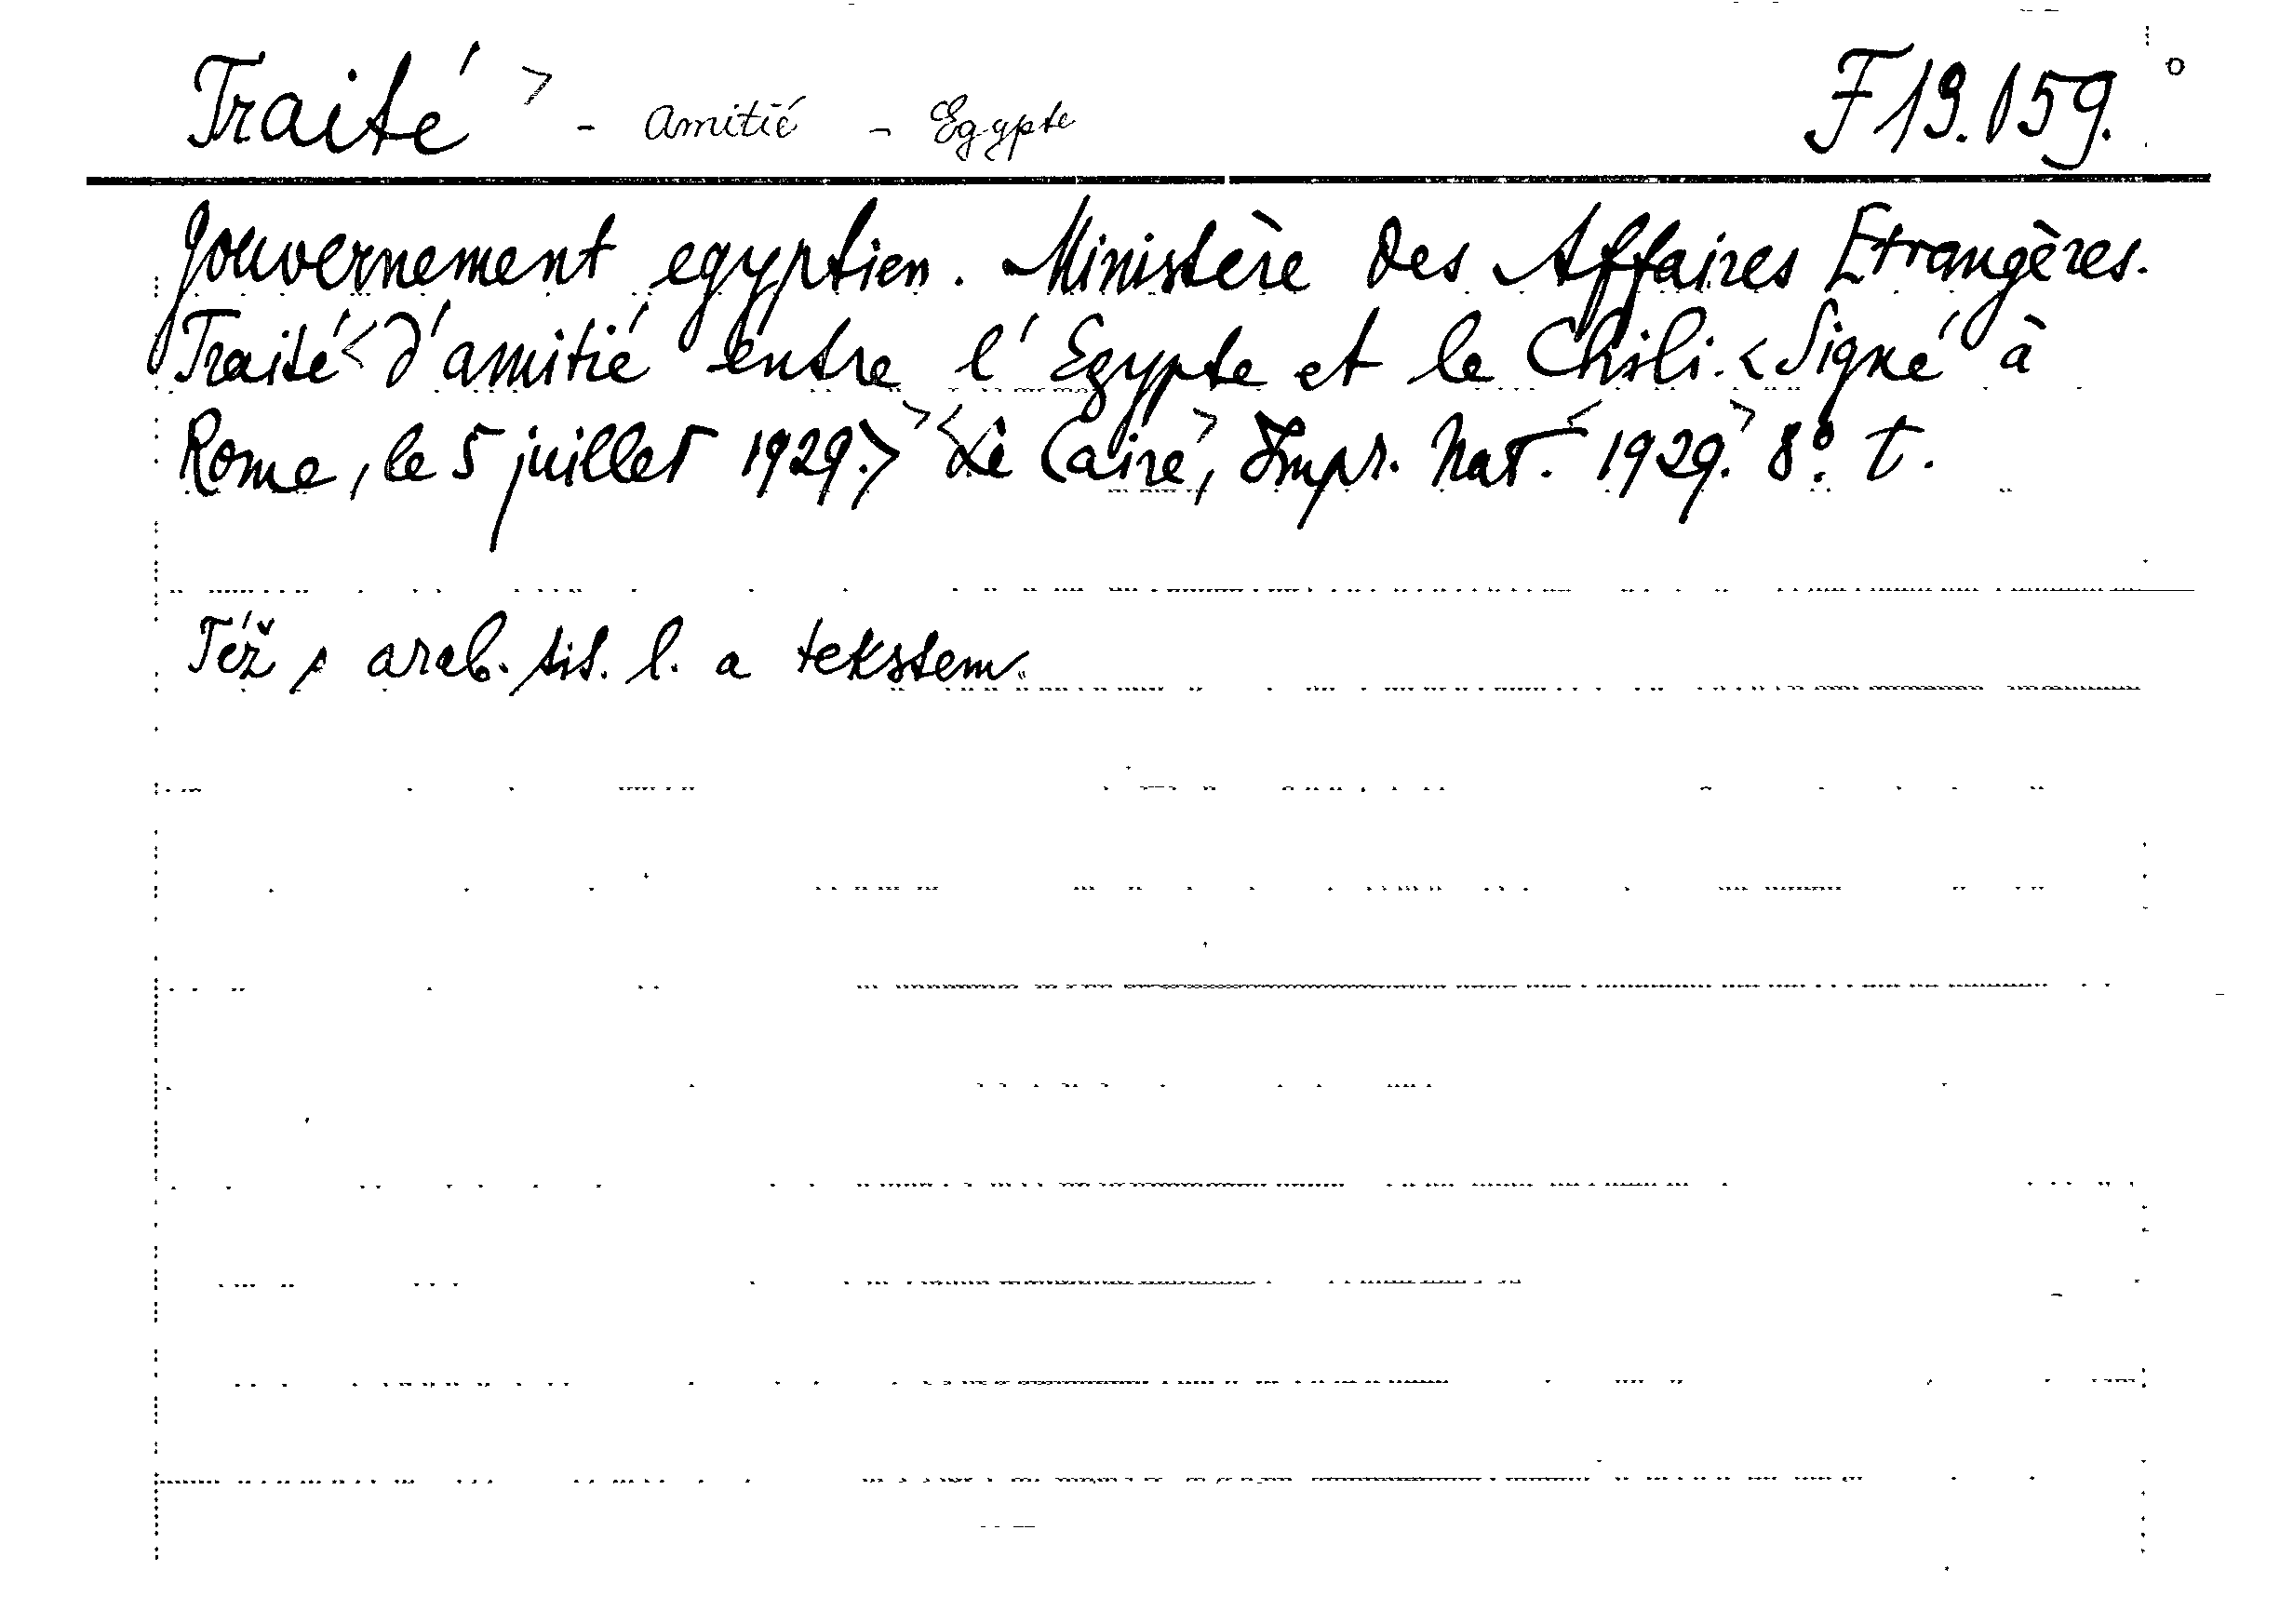 Traité > - Amitié - Egypte F 19.159.
Gouvernement egyptien. Ministère des Affaires Etrangères.
Traité < d'amitié entre l'Egypte et le Chili. < Signé à
Rome, le 5 juillet 1929.> > < Le Caire >, Impr. Nat. < 1929. > 8º. t.
Též s arab. tit. l. a tekstem.